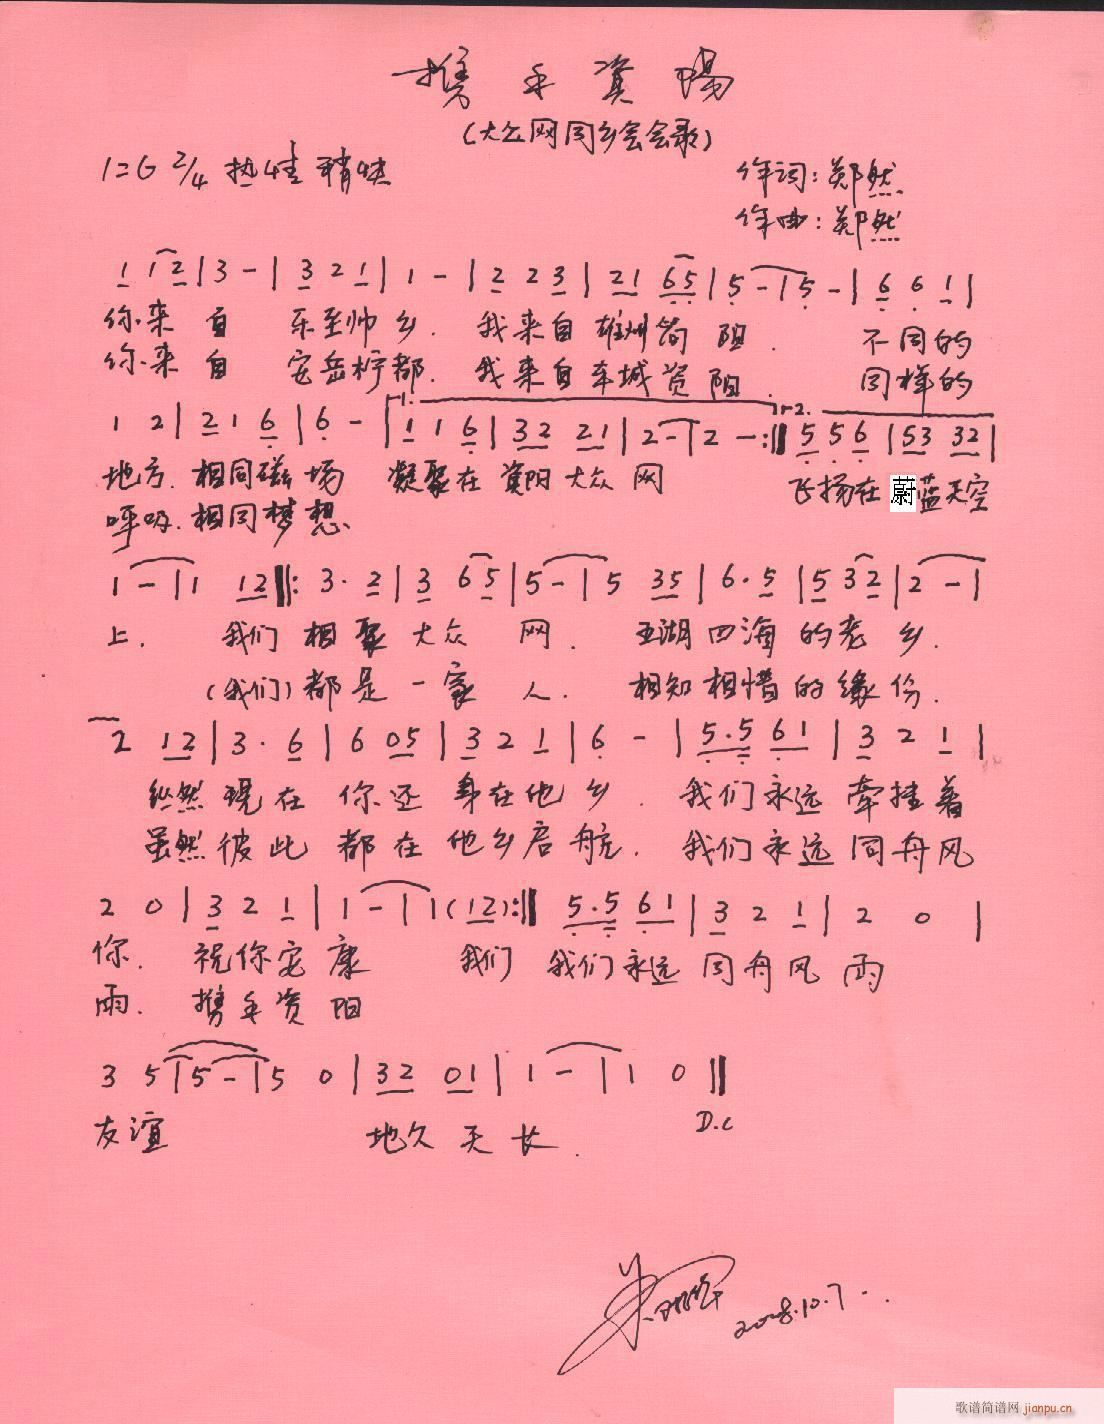 携手资阳
(大众网同乡会会歌)
1=G 2/4 热情 稍快
作词:郑然
作曲:郑然
1 1 2 | 3 - | 3 2 1 | 1 - | 2 2 3 | 2 1 6 5 | 5 - | 5 - | 6 6 1 |
你来自 乐至帅乡. 我来自雄州简阳. 不同的
你来自 安岳柠都. 我来自车城资阳. 同样的
1 2 | 2 1 6 | 6 - | 1. 1 1 6 | 3 2 2 1 | 2 - | 2 - :‖ 2. 5 5 6 | 5 3 3 2 |
地方. 相同磁场 凝聚在资阳大众网 飞扬在蔚蓝天空
呼吸. 相同梦想
1 - | 1 1 2 ‖: 3 · 2 | 3 6 5 | 5 - | 5 3 5 | 6 · 5 | 5 3 2 | 2 - |
上. 我们相聚大众网. 五湖四海的老乡.
(我们)都是一家人. 相知相惜的缘份.
2 1 2 | 3 · 6 | 6 0 5 | 3 2 1 | 6 - | 5 . 5 6 1 | 3 2 1 |
纵然现在你还身在他乡. 我们永远牵挂着
虽然彼此都在他乡启航. 我们永远同舟风
2 0 | 3 2 1 | 1 - | 1 (1 2) :‖ 5 . 5 6 1 | 3 2 1 | 2 0 |
你. 祝你安康 我们 我们永远同舟风雨
雨. 携手资阳
3 5 | 5 - | 5 0 | 3 2 0 1 | 1 - | 1 0 ‖
友谊 地久天长.
D.C
2008.10.7
歌谱简谱网 jianpu.cn